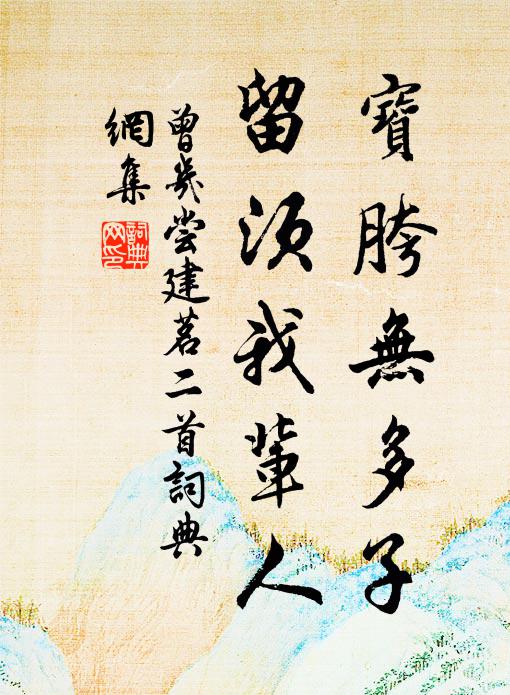 寶胯無多子
留須我輩人
曾幾尝建茗二首詞典
網集
詞典
网印